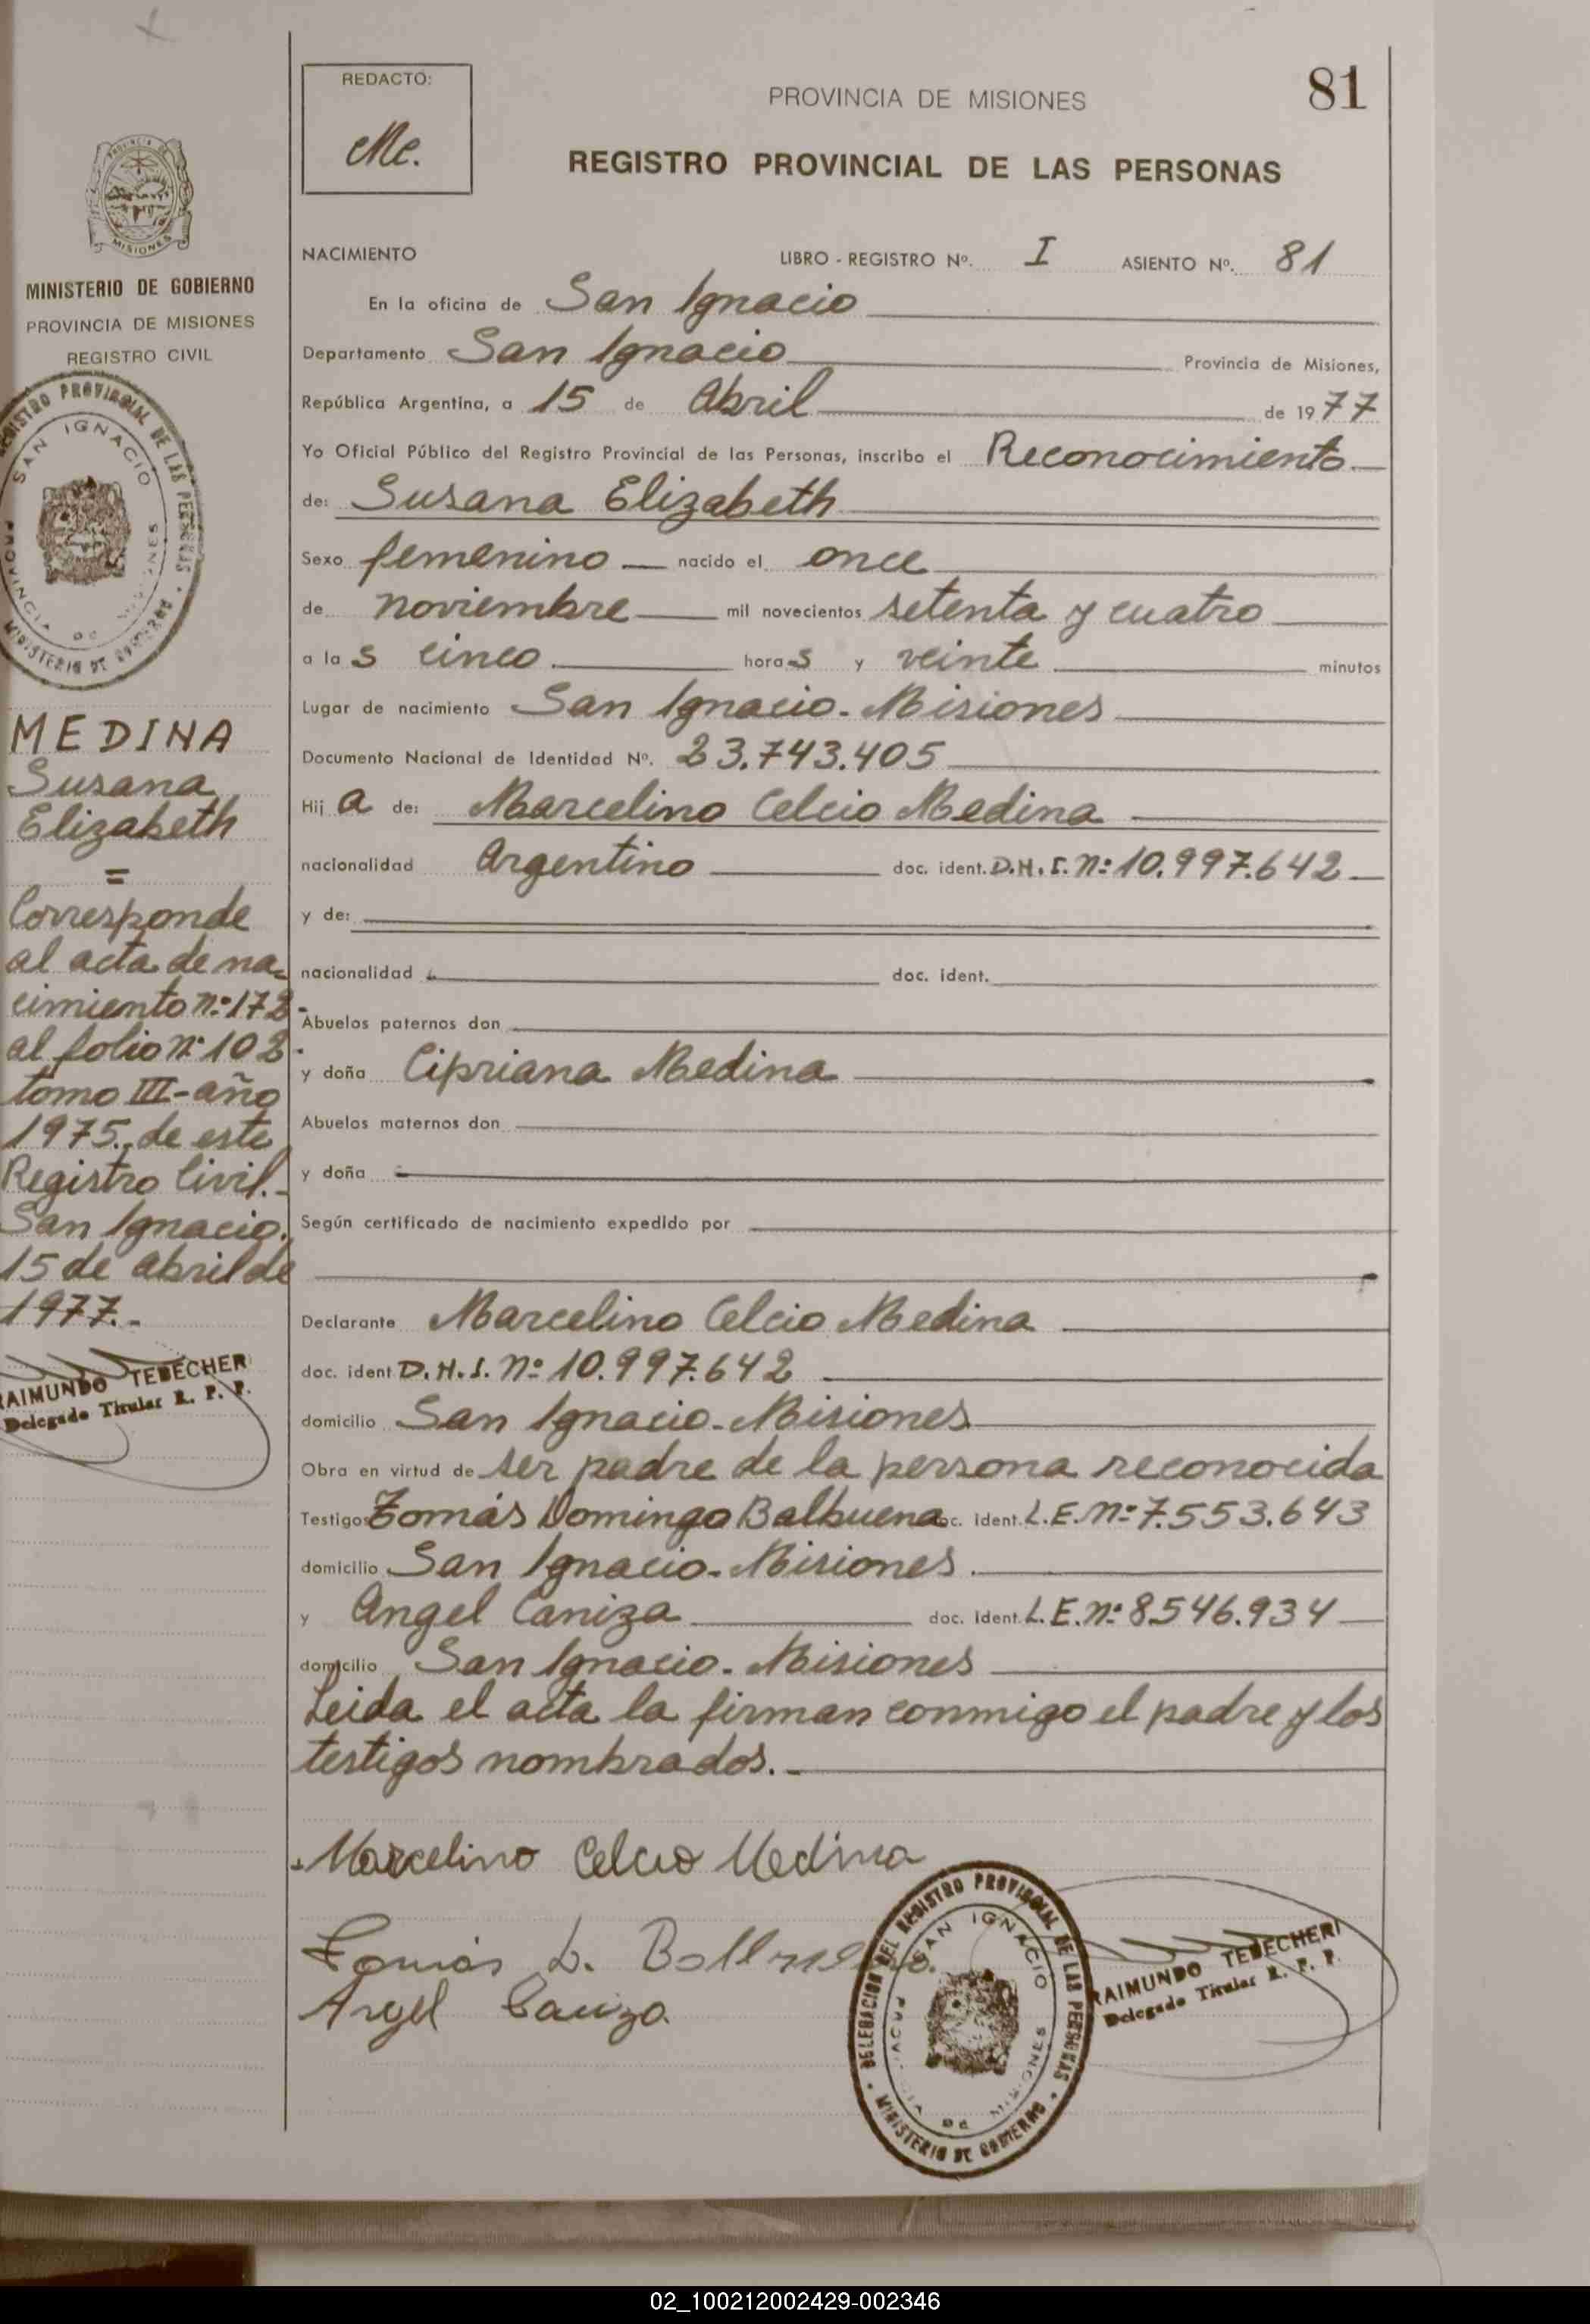 REDACTÓ:
Me.
PROVINCIA DE MISIONES
81
REGISTRO PROVINCIAL DE LAS PERSONAS
MINISTERIO DE GOBIERNO
PROVINCIA DE MISIONES
REGISTRO CIVIL
MEDINA
Susana
Elizabeth
=
Corresponde
al acta de na-
cimiento nº 172-
al folio nº 102-
tomo III-año
1975. de este
Registro Civil.-
San Ignacio,
15 de abril de
1977.-
RAIMUNDO TEDECHERI
Delegado Titular R. P. P.
NACIMIENTO LIBRO - REGISTRO Nº. I ASIENTO Nº. 81
En la oficina de San Ignacio
Departamento San Ignacio Provincia de Misiones,
República Argentina, a 15 de Abril de 1977
Yo Oficial Público del Registro Provincial de las Personas, inscribo el Reconocimiento
de: Susana Elizabeth
Sexo femenino nacido el once
de noviembre mil novecientos setenta y cuatro
a las cinco horas y veinte minutos
Lugar de nacimiento San Ignacio - Misiones
Documento Nacional de Identidad Nº. 23.743.405
Hija de: Marcelino Celcio Medina
nacionalidad Argentino doc. ident. D.N.I. nº 10.997.642
y de:
nacionalidad doc. ident.
Abuelos paternos don
y doña Cipriana Medina
Abuelos maternos don
y doña
Según certificado de nacimiento expedido por
Declarante Marcelino Celcio Medina
doc. ident D.N.I. nº 10.997.642
domicilio San Ignacio - Misiones
Obra en virtud de ser padre de la persona reconocida
Testigos Tomás Domingo Balbuena doc. ident. L.E. nº 7.553.643
domicilio San Ignacio - Misiones
y Angel Caniza doc. ident. L.E. nº 8.546.934
domicilio San Ignacio - Misiones
Leida el acta la firman conmigo el padre y los
testigos nombrados.-
Marcelino Celcio Medina
Tomás D.
Angel Caniza
DELEGACION DEL REGISTRO PROVINCIAL DE LAS PERSONAS
SAN IGNACIO
PROVINCIA DE MISIONES
MINISTERIO DE GOBIERNO
RAIMUNDO TEDECHERI
Delegado Titular R. P. P.
02_100212002429-002346